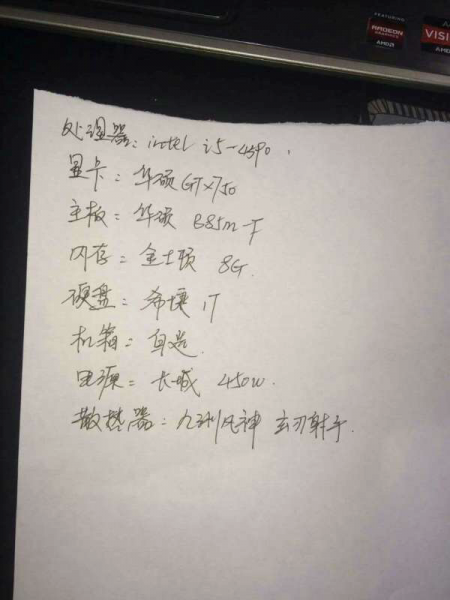 FEATURING
RADEON
GRAPHICS
AMD
VISI
AMD
处理器：intel i5-4590.
显卡：华硕GTX750
主板：华硕 B85m-F
内存：金士顿 8G.
硬盘：希捷 1T
机箱：自选.
电源：长城 450w.
散热器：九州风神 玄刃射手.